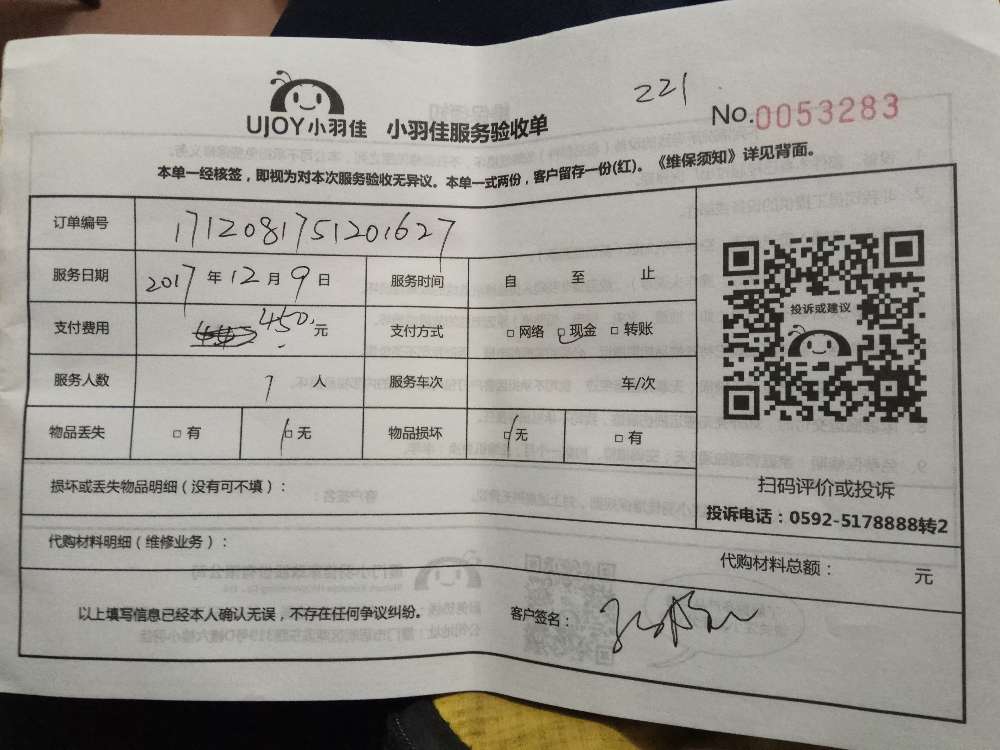 221
UJOY小羽佳 小羽佳服务验收单 No.0053283
本单一经核签，即视为对本次服务验收无异议。本单一式两份，客户留存一份(红)。《维保须知》详见背面。
订单编号 1712081751201627
服务日期 2017 年 12 月 9 日 服务时间 自 至 止
支付费用 450 元 支付方式 □ 网络 □ 现金 □ 转账
服务人数 1 人 服务车次 车/次
物品丢失 □ 有 □ 无 物品损坏 □ 无 □ 有
投诉或建议
扫码评价或投诉
投诉电话：0592-5178888转2
损坏或丢失物品明细（没有可不填）：
代购材料明细（维修业务）： 代购材料总额： 元
以上填写信息已经本人确认无误，不存在任何争议纠纷。 客户签名：